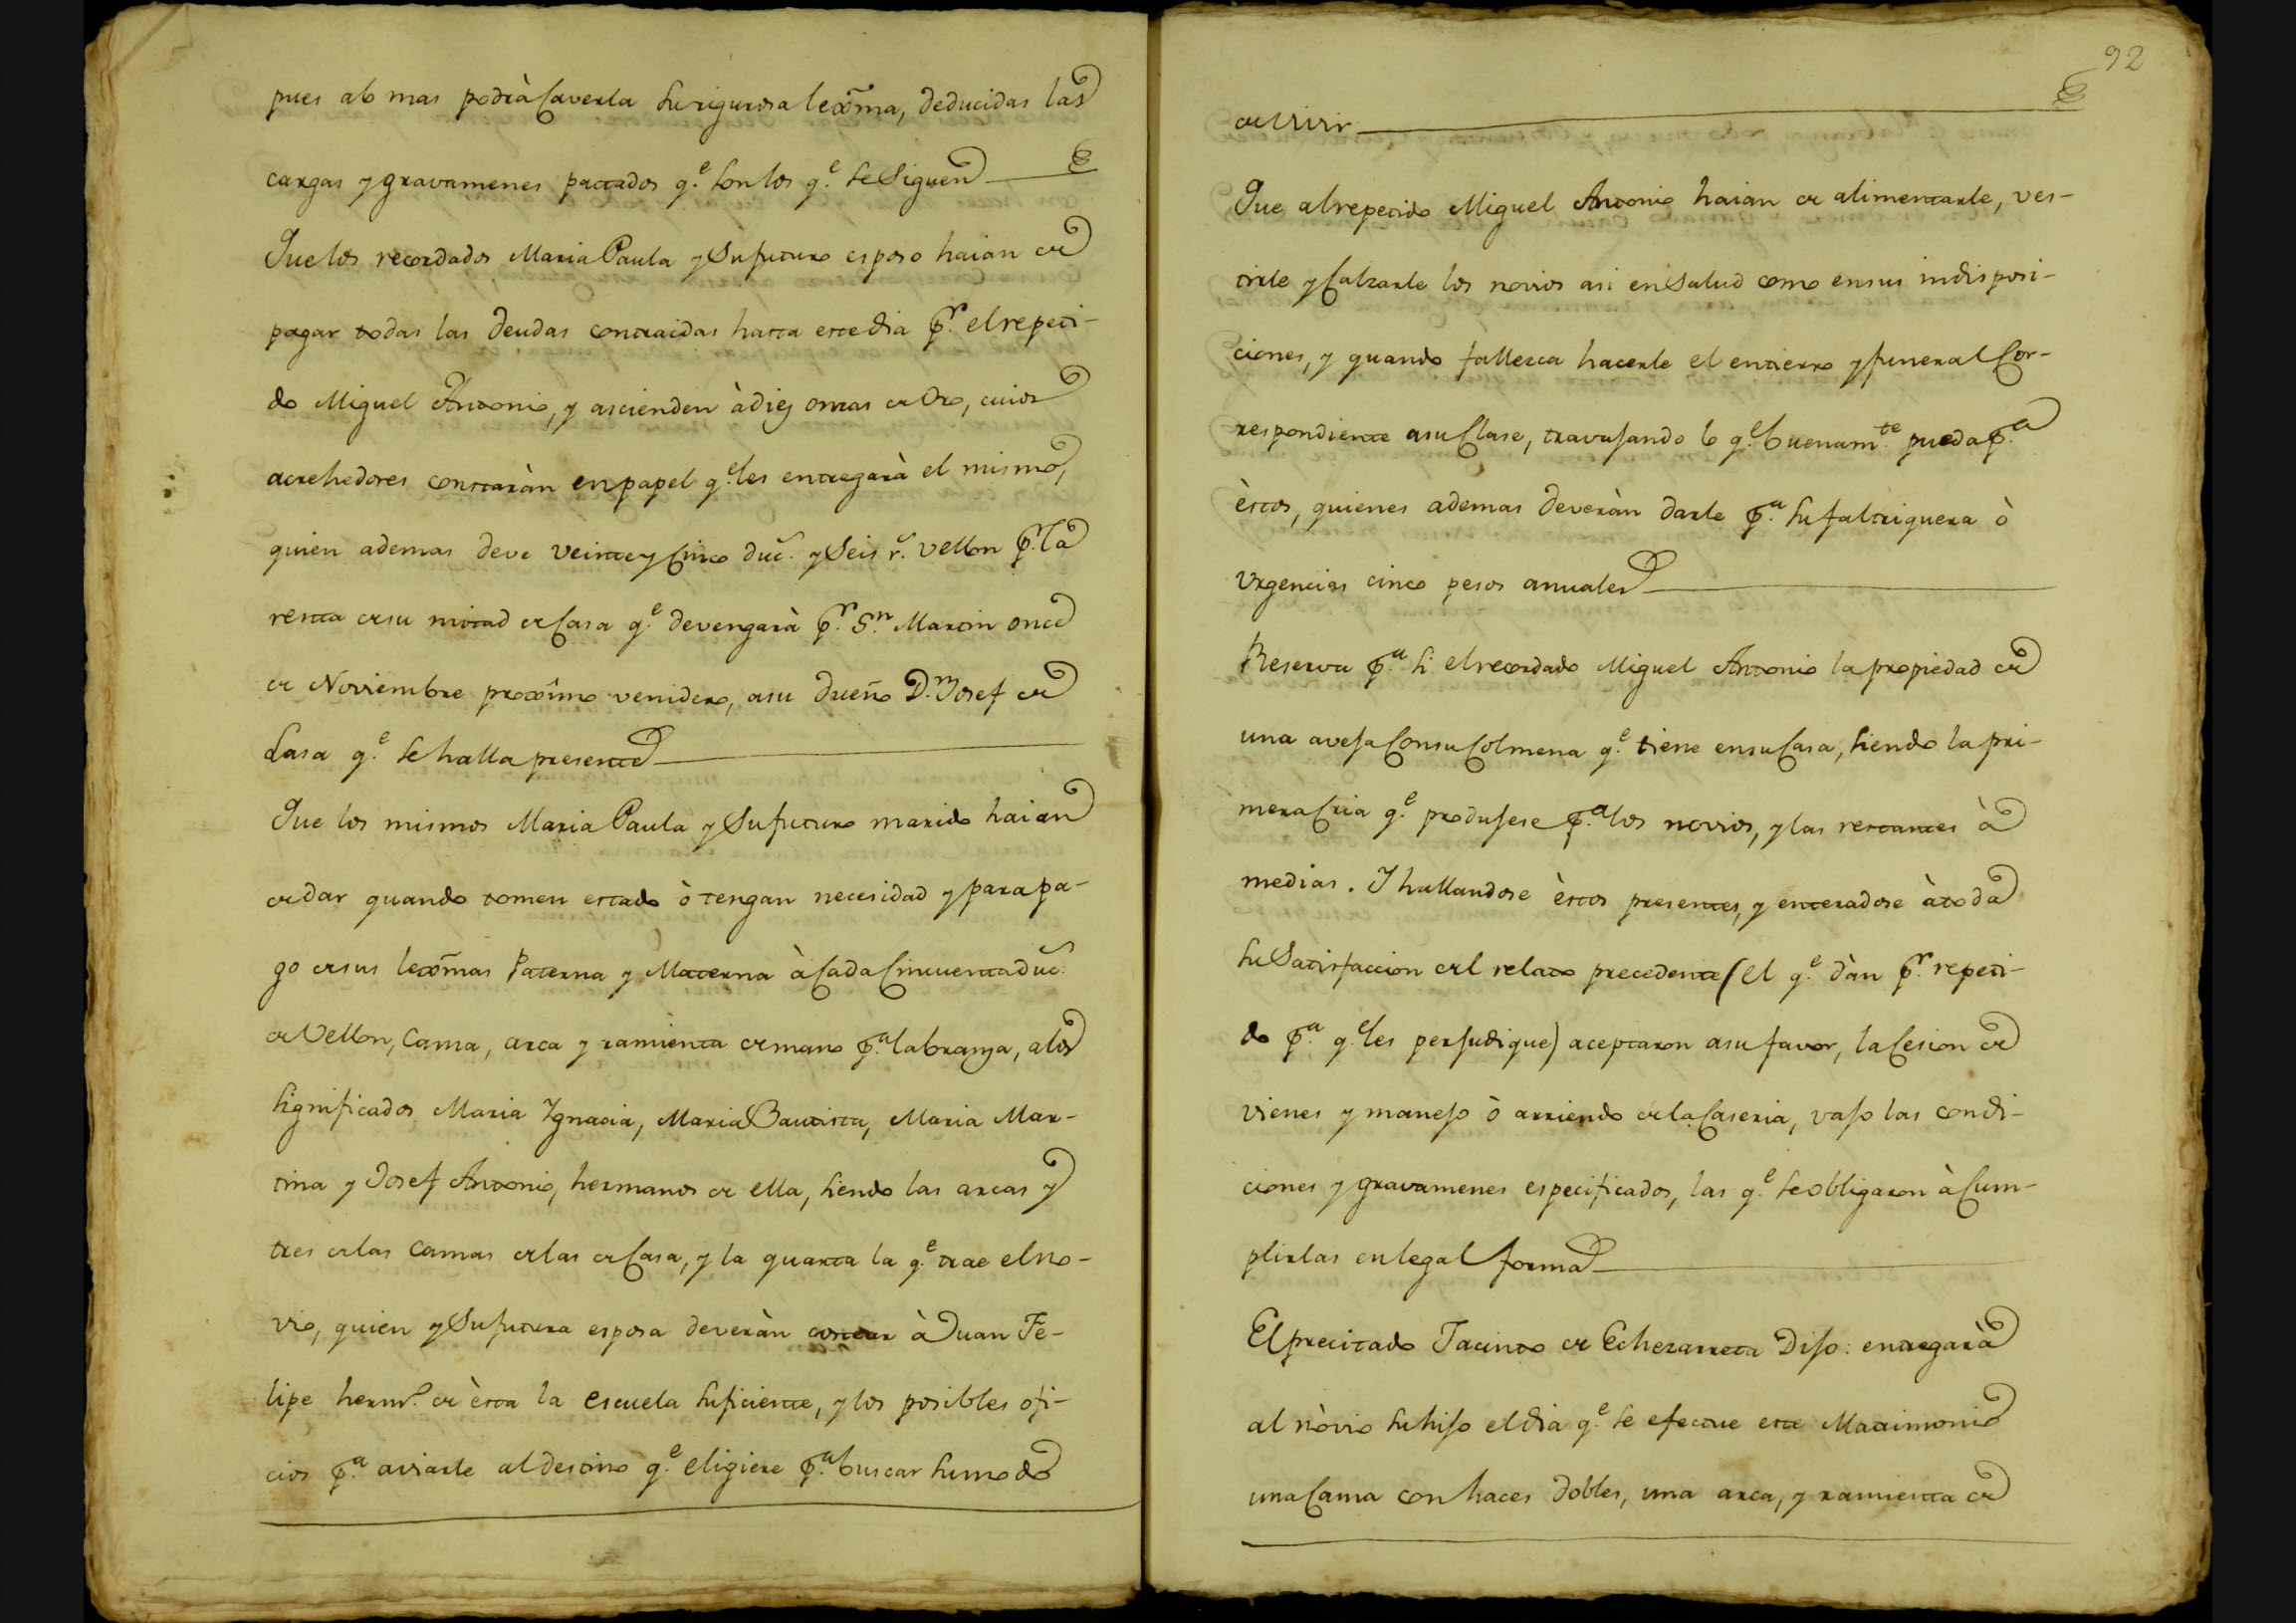 pues a lo mas podrà caverla su rigurosa lexma, deducidas las
cargas y gravamenes pactados q.e son los q.e se siguen
Que los recordados Maria Paula y su futuro esposo haian de
pagar todas las deudas contraidas hasta este dia p.r el repeti-
do Miguel Antonio, y ascienden à diez onzas de Oro, cuios
acrehedores constaràn en papel q.e les entregarà el mismo,
quien ademas deve veinte y cinco duc.s y seis r.s vellon p.r la
renta de su mitad de casa q.e devengarà p.r S.n Martin once
de Noviembre proximo venidero, a su dueño D.n Josef de
Lasa q.e se halla presente
Que los mismos Maria Paula y su futuro marido haian
de dar quando tomen estado ò tengan necesidad y para pa-
go de sus lexmas Paterna y Materna à cada cincuenta duc.s
de Vellon, cama, arca y ramienta de mano p.a labranza, a los
significados Maria Ygnacia, Maria Bautista, Maria Mar-
tina y Josef Antonio, hermanos de ella, siendo las arcas y
tres de las camas de las de casa, y la quarta la q.e trae el no-
vio, quien y su futura esposa deveràn costear à Juan Fe-
lipe herm.o de èsta la escuela suficiente, y los posibles ofi-
cios p.a aviarle al destino q.e eligiere p.a buscar su modo
92
de vivir
Que al repetido Miguel Antonio haian de alimentarle, ves-
tirle y calzarle los novios asi en salud como en sus indisposi-
ciones, y quando fallezca hacerle el entierro y funeral cor-
respondiente a su clase, travajando lo q.e buenam.te pueda p.a
èstos, quienes ademas deveràn darle p.a su faltriquera ò
urgencias cinco pesos anuales
Reserva p.a si el recordado Miguel Antonio la propiedad de
una aveja con su colmena q.e tiene en su casa, siendo la pri-
mera cria q.e produjese p.a los novios, y las restantes à
medias. Y hallandose èstos presentes, y enteradose à toda
su satisfaccion del relato precedente (el q.e dàn p.r repeti-
do p.a q.e les perjudique) aceptaron a su favor, la cesion de
vienes y manejo ò arriendo de la caseria, vajo las condi-
ciones y gravamenes especificados, las q.e se obligaron à cum-
plirlas en legal forma
El precitado Jacinto de Echezarreta Dijo: entregarà
al nòvio su hijo el dia q.e se efectue este Matrimonio
una cama con haces dobles, una arca, y ramienta de